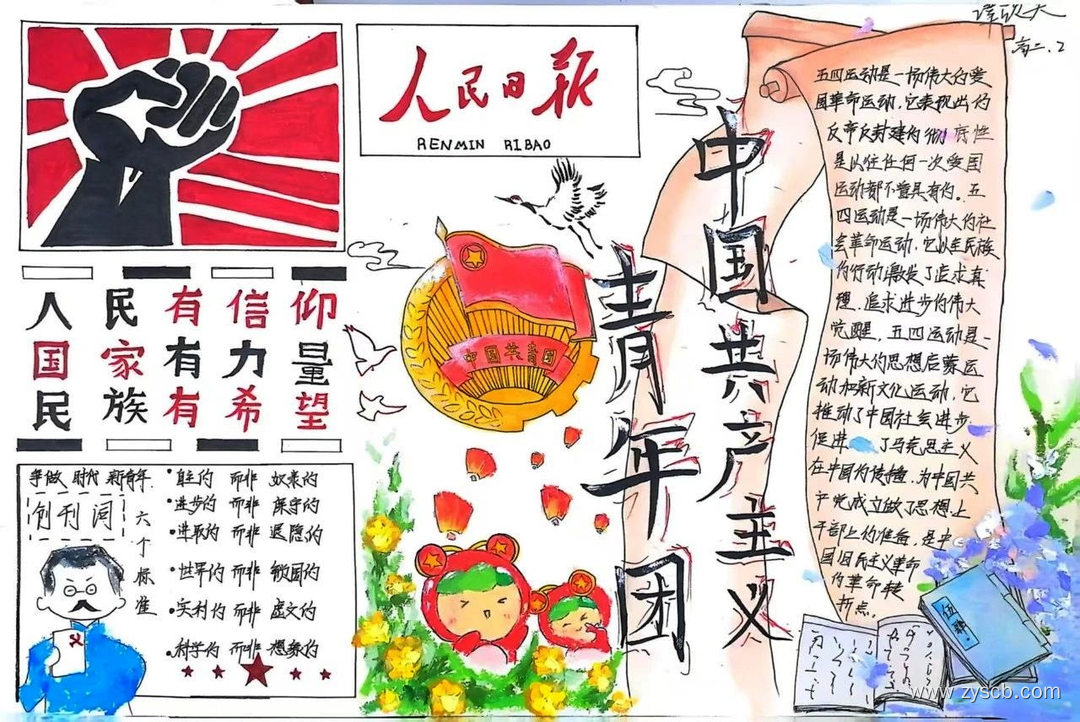 人民日报
RENMIN RIBAO
人民有信仰
国家有力量
民族有希望
争做时代新青年
创刊词
六个标准
·自主的 而非 奴隶的
·进步的 而非 保守的
·进取的 而非 退隐的
·世界的 而非 锁国的
·实利的 而非 虚文的
·科学的 而非 想象的
中国共青团
中国共产主义
青年团
高二.2
五四运动是一场伟大的爱
国革命运动,它表现出的
反帝反封建的彻 底性
是以往任何一次爱国
运动都不曾具有的。五
四运动是一场伟大的社
会革命运动,它以全民族
的行动激发了追求真
理、追求进步的伟大
觉醒,五四运动是一
场伟大的思想启蒙运
动和新文化运动,它
推动了中国社会进步
促进 了马克思主义
在中国的传播,为中国共
产党成立做了思想上
干部上的准备,是中
国旧民主义革命
的革命转
折点。
www.zyscb.com